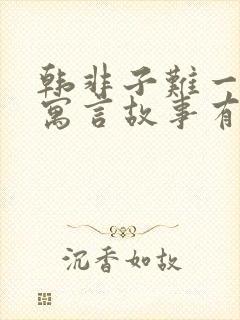 韩非子难一
寓言故事有
沉香如故